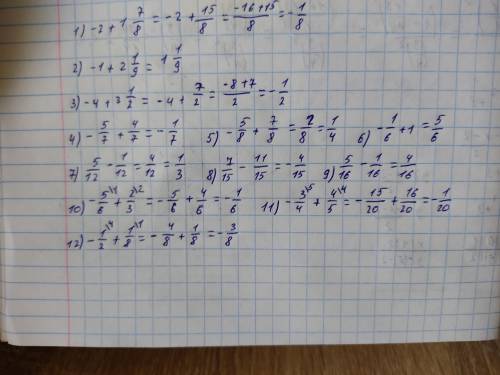 1) -2 + 1 7/8 = -2 + 15/8 = (-16+15)/8 = - 1/8
2) -1 + 2 1/9 = 1 1/9
3) -4 + 3 1/2 = -4 + 7/2 = (-8+7)/2 = - 1/2
4) - 5/7 + 4/7 = - 1/7 5) - 5/8 + 7/8 = 2/8 = 1/4 6) - 1/6 + 1 = 5/6
7) 5/12 - 1/12 = 4/12 = 1/3 8) 7/15 - 11/15 = - 4/15 9) 5/16 - 1/16 = 4/16
10) - 5\1/6 + 2\2/3 = - 5/6 + 4/6 = - 1/6 11) - 3\5/4 + 4\4/5 = - 15/20 + 16/20 = - 1/20
12) - 1\4/2 + 1\1/8 = - 4/8 + 1/8 = - 3/8